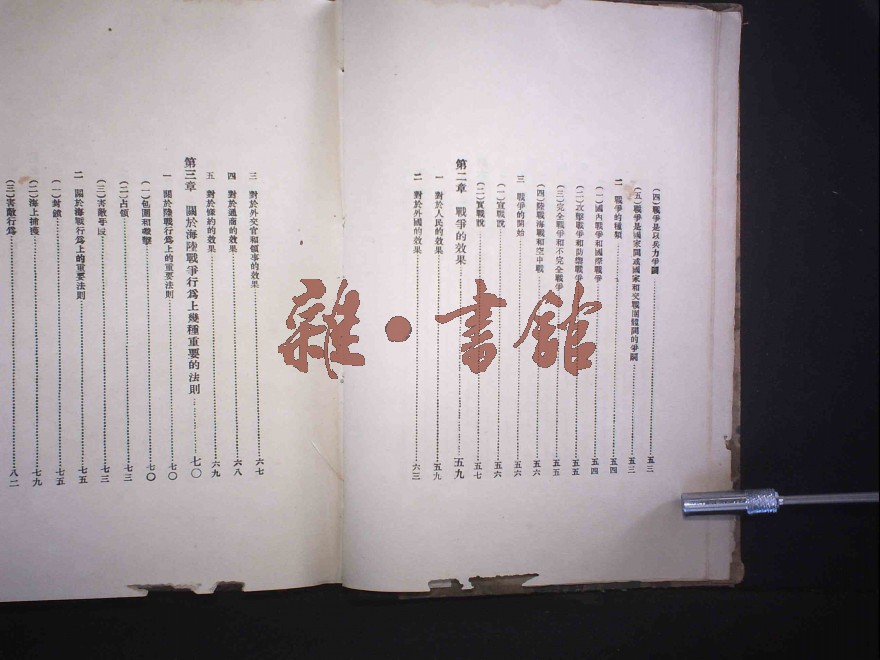 (四)戰爭是以兵力爭鬪……五三
(五)戰爭是國家間或國家和交戰團體間的爭鬪……五三
二 戰爭的種類……五四
(一)國內戰爭和國際戰爭……五四
(二)攻擊戰爭和防禦戰爭……五五
(三)完全戰爭和不完全戰爭……五五
(四)陸戰海戰和空中戰……五六
三 戰爭的開始……五六
(一)宣戰說……五六
(二)實戰說……五七
第二章 戰爭的效果……五九
一 對於人民的效果……五九
二 對於外國的效果……六三
三 對於外交官和領事的效果……六七
四 對於通商的效果……六八
五 對於條約的效果……六九
第三章 關於海陸戰爭行爲上幾種重要的法則……七〇
一 關於陸戰行爲上的重要法則……七〇
(一)包圍和襲擊……七〇
(二)占領……七三
(三)害敵手段……七三
二 關於海戰行爲上的重要法則……七五
(一)封鎖……七五
(二)海上捕獲……七九
(三)害敵行爲……八二
雜·書館